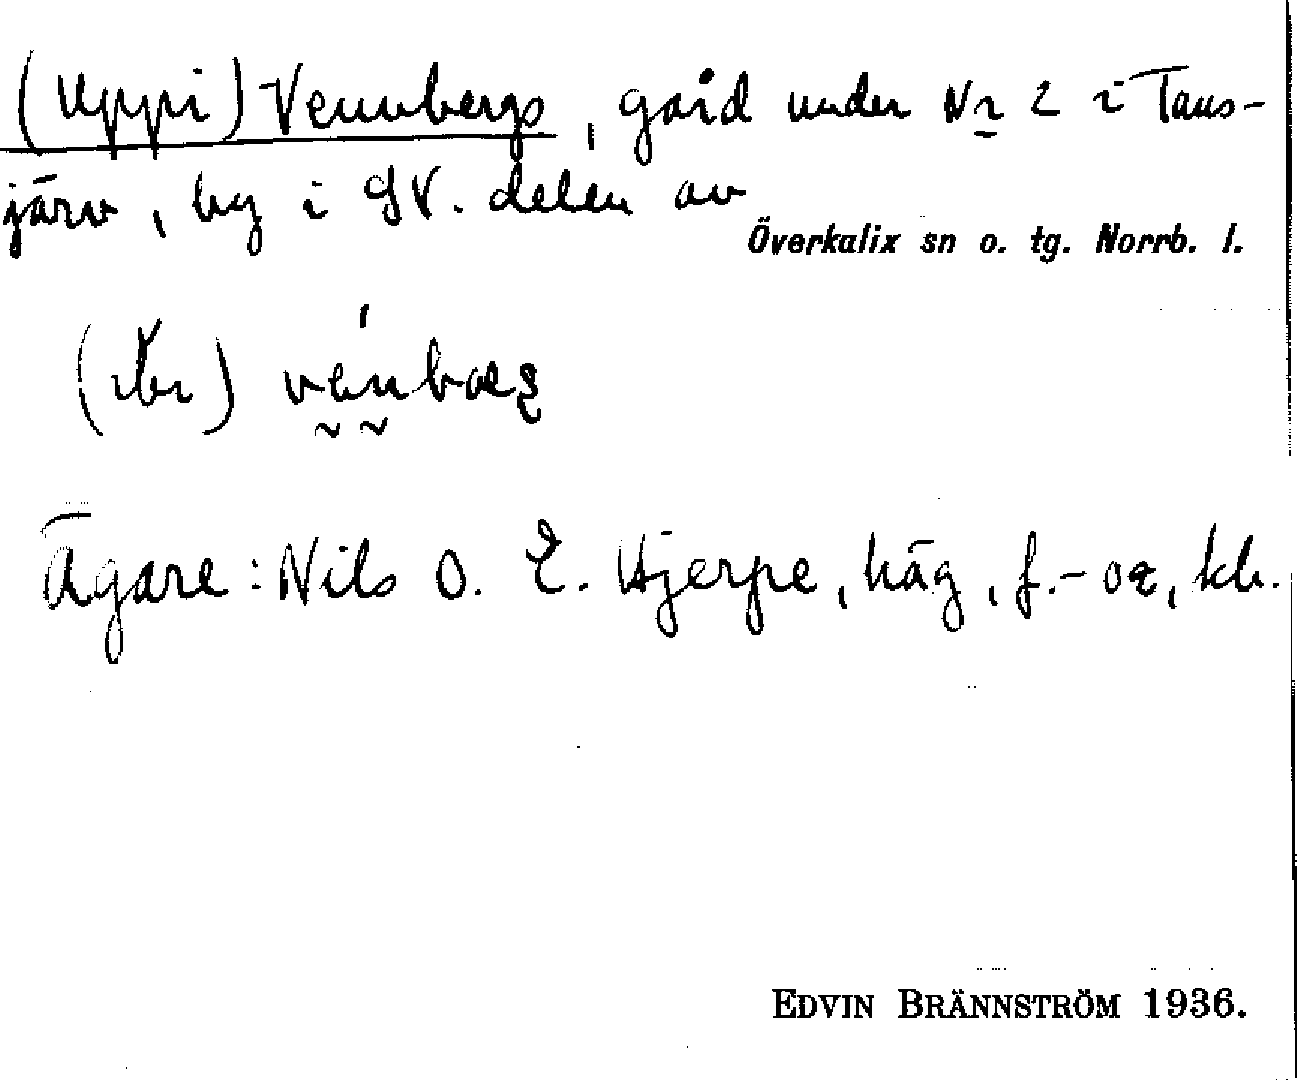 (Uppi) Vennbergs, gård under Nr 2 i Tans-
järv, by i SV. delen av
Överkalix sn o. tg. Norrb. l.
Ägare: Nils O. E. Hjerpe, häg, f.- oz, kb.
EDVIN BRÄNNSTRÖM 1936.